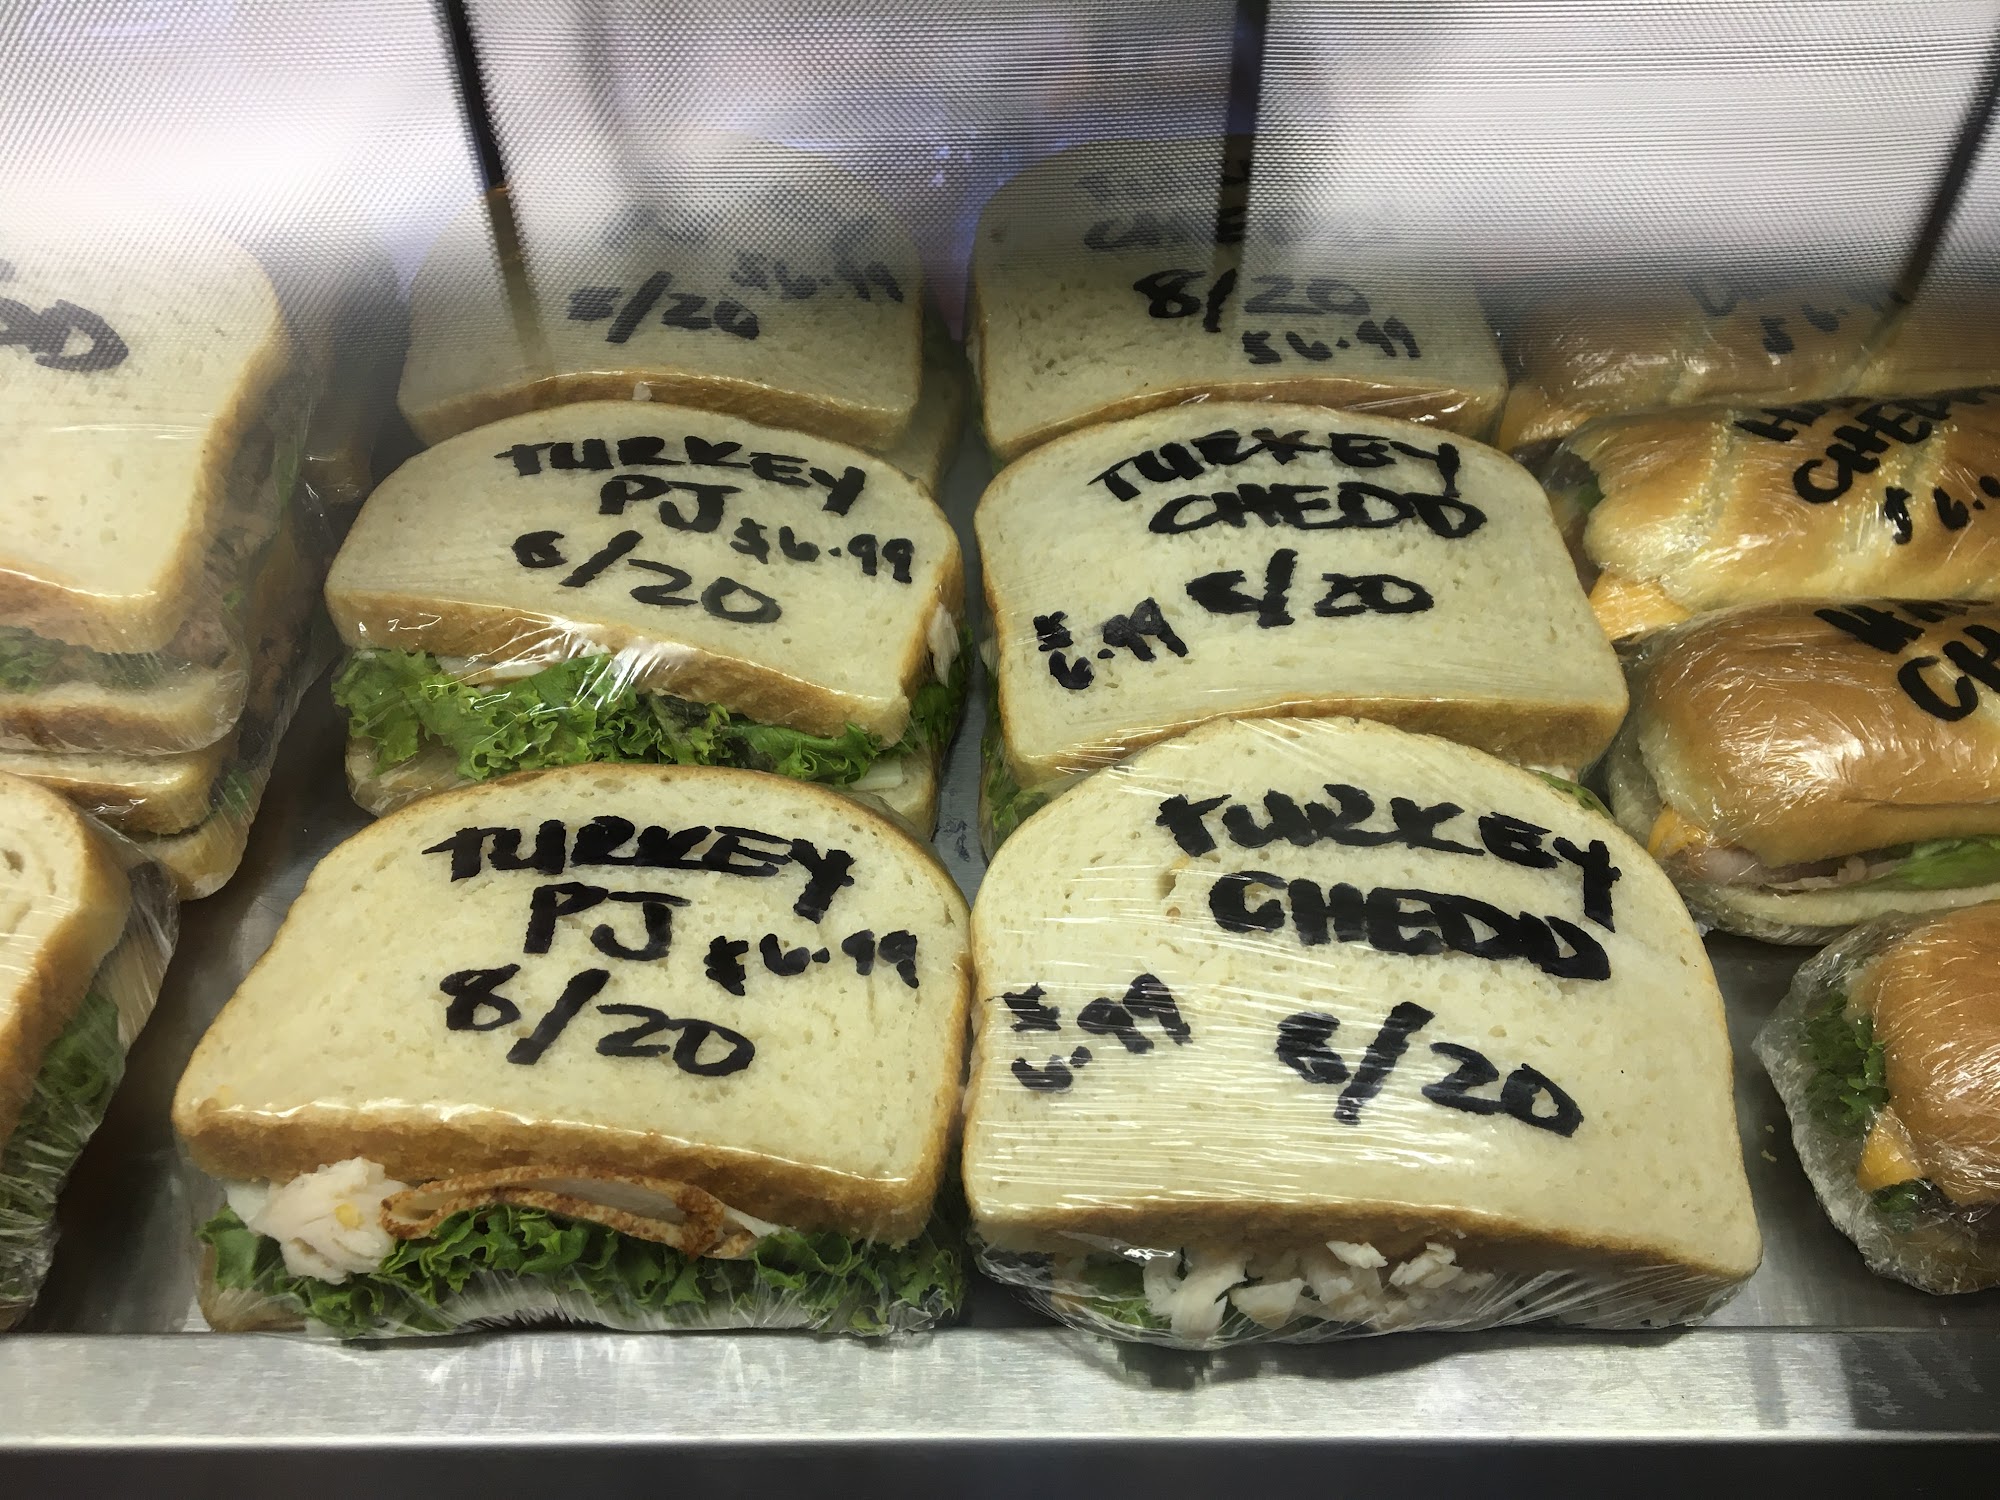 DD
8/20
$6.99
8/20
$6.99
TURKEY
PJ $6.99
8/20
TURKEY
CHEDD
8/20
$
6.99
CHED
$6.
CH
TURKEY
PJ $6.99
8/20
TURKEY
CHEDD
$
6.99
8/20